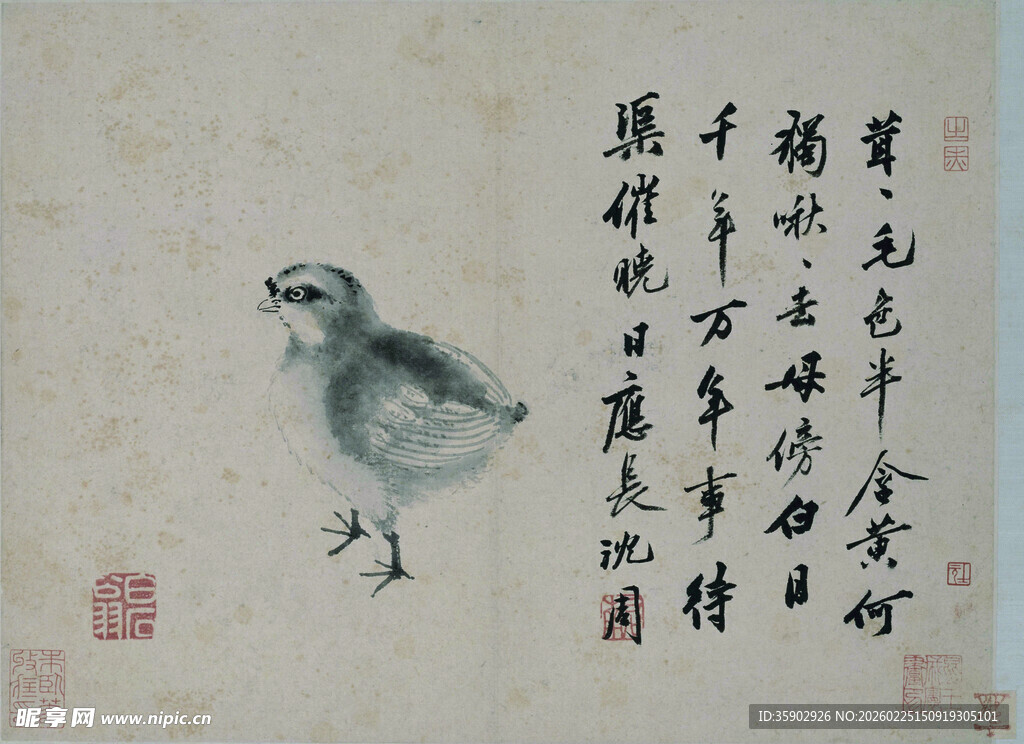 茸〻毛色半含黄何
獨啾〻去母傍白日
千年万年事待
渠催曉日應長沈周
昵享网 www.nipic.cn
ID:35902926 NO:20260225150919305101